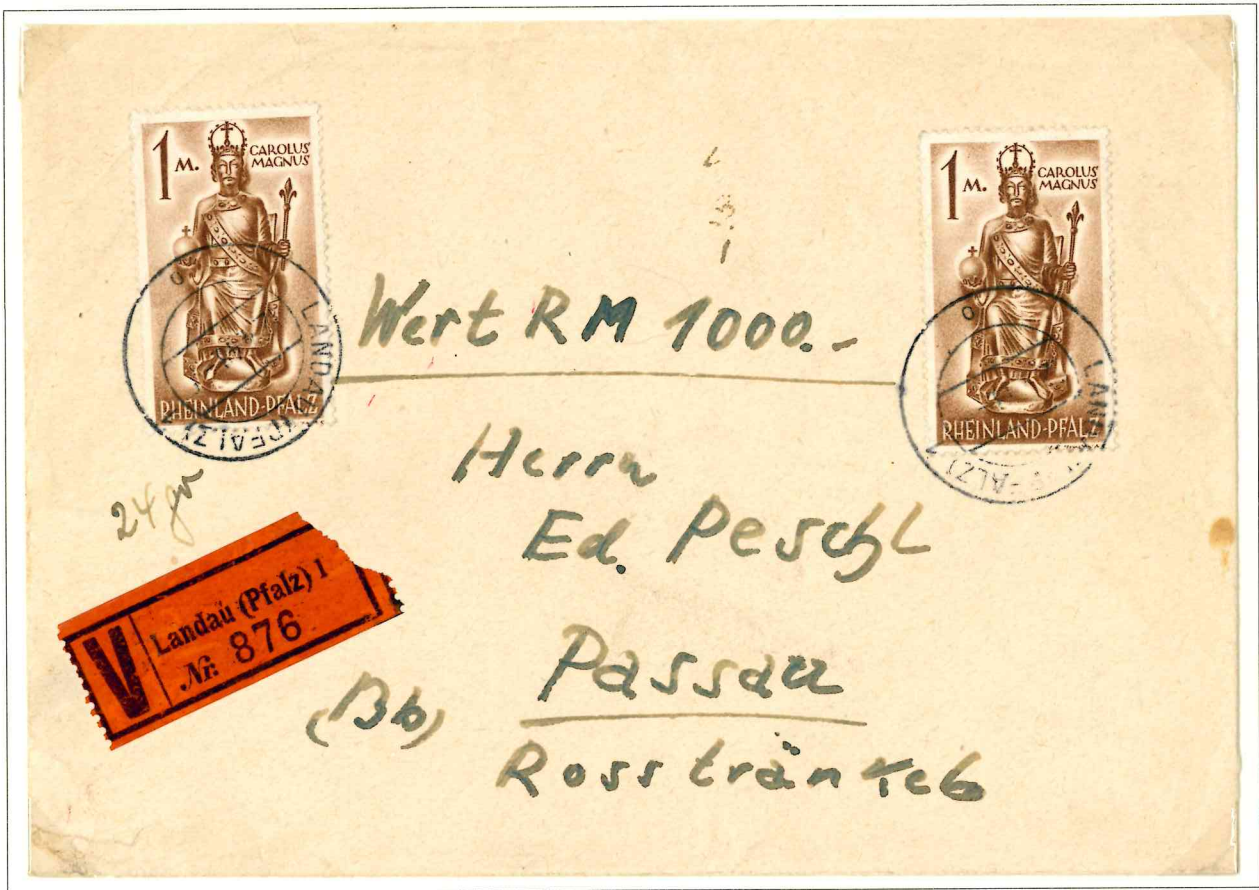 1 M.
CAROLUS
MAGNUS
RHEINLAND-PFALZ
LANDAU (PFALZ) 1
1 M.
CAROLUS
MAGNUS
RHEINLAND-PFALZ
Wert RM 1000.-
Herrn
Ed. Peschl
24 gr
V
Landau (Pfalz) 1
Nr. 876
Passau
Rosstränke 6